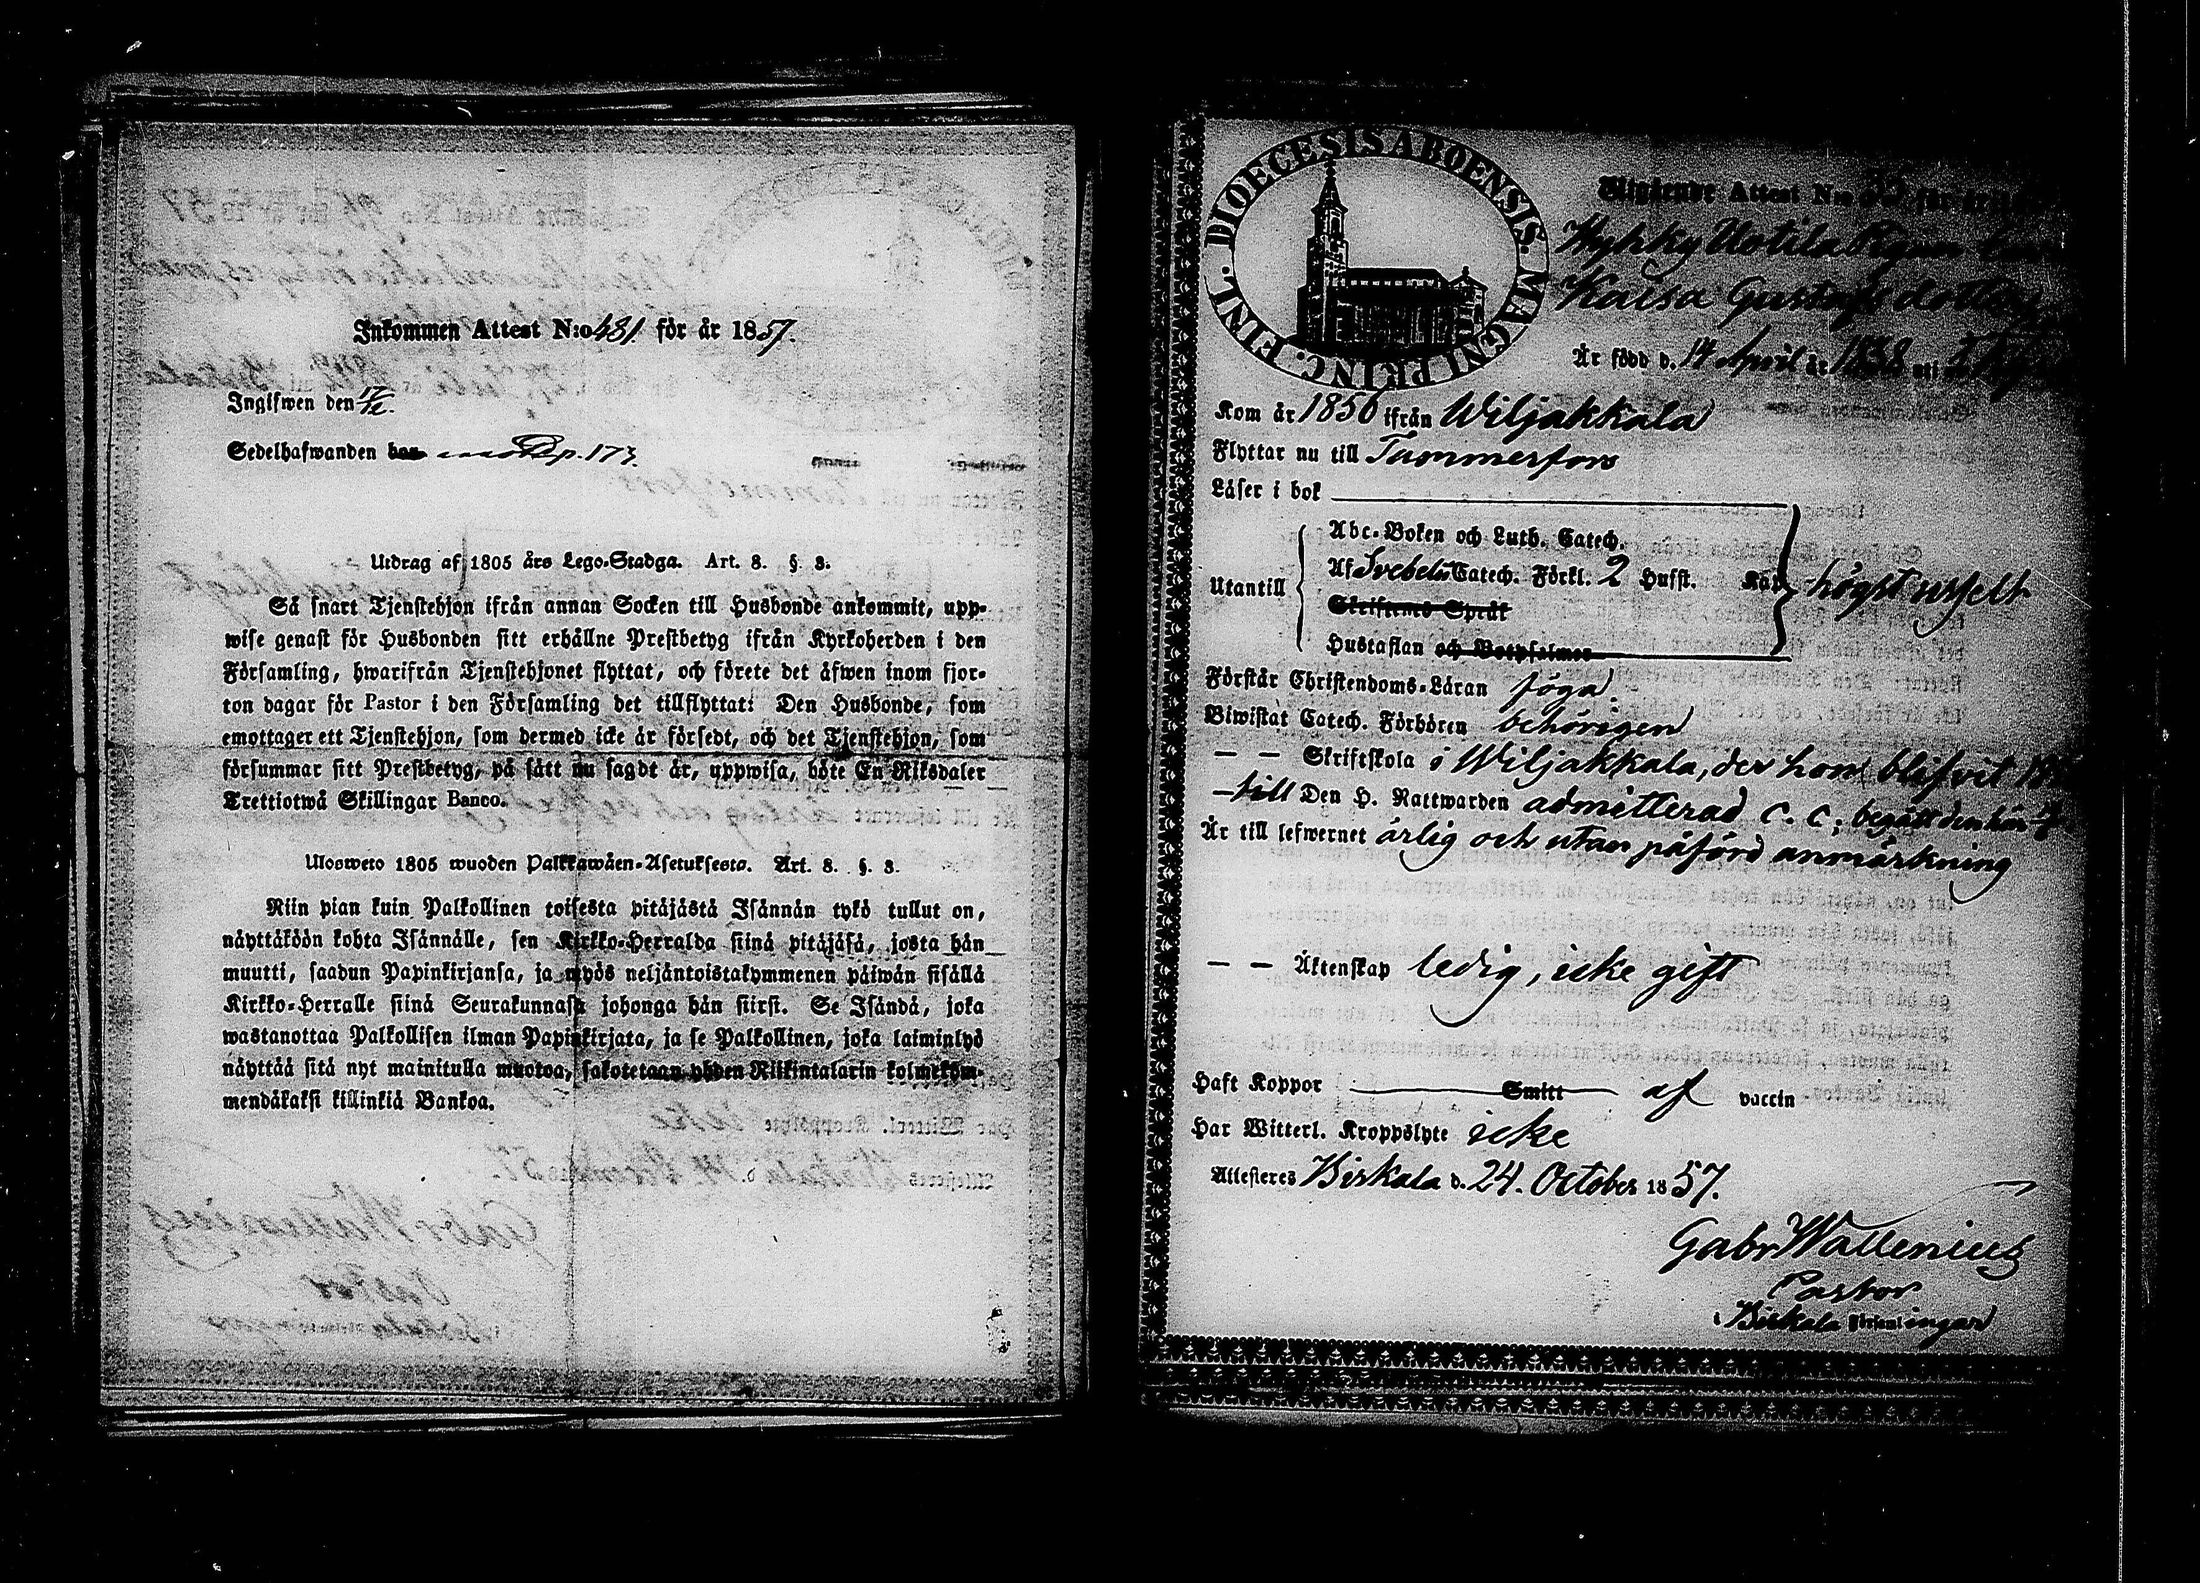 Inkommen Attest N:o 481. för år 1857.
Ingifwen den
Sedelhafwanden har p. 173.
Utdrag af 1805 års Lego-Stadga. Art. 8. §. 3.
Så snart Tjenstehjon ifrån annan Socken till Husbonde ankommit, upp-
wise genast för Husbonden sitt erhållne Prestbetyg ifrån Kyrkoherden i den
Församling, hwarifrån Tjenstehjonet flyttat, och förete det äfwen inom fjor-
ton dagar för Pastor i den Församling det tillflyttat: Den Husbonde, som
emottager ett Tjenstehjon, som dermed icke är försedt, och det Tjenstehjon, som
försummar sitt Prestbetyg, på sätt nu sagdt är, uppwisa, böte En Riksdaler
Trettiotwå Skillingar Banco.
Ulosweto 1805 wuoden Palkkawäen-Asetuksesta. Art. 8. §. 3.
Niin pian kuin Palkollinen toisesta pitäjästä Isännän tykö tullut on,
näyttäköön kohta Isännälle, sen Kirkko-Herralda siinä pitäjäsä, josta hän
muutti, saadun Papinkirjansa, ja myös neljäntoistakymmenen päiwän sisällä
Kirkko-Herralle siinä Seurakunnasa johonga hän siirsi. Se Isändä, joka
wastanottaa Palkollisen ilman Papinkirjata, ja se Palkollinen, joka laiminlyö
näyttää sitä nyt mainitulla muotoa, sakotetaan yhden Riikintalarin kolmeköm-
mendäkaksi killinkiä Bankoa.
DIOECESIS ABOENSIS. MAGNI PRINC. FINL.
Utgående Attest N:o 35 för år
Kyhky Uotila Pigan
Kaisa Gustafsdotter
Är född d. 14 April år 1838 uti
Kom år 1856 ifrån Wiljakkala
Flyttar nu till Tammerfors
Läser i bok
Abc-Boken och Luth. Catech.
Utantill Af Svebelii Catech. Förkl. 2 Hufst. högst uselt
Skriftens Språk
Hustaflan och Botpsalmer
Förstår Christendoms-Läran föga
Biwistat Catech. Förhören behörigen
— — Skriftskola i Wiljakkala, der hon blifvit
— till Den H. Nattwarden admitterad c. c; begått den
Är till lefwernet ärlig och utan påförd anmärkning
— — Äktenskap ledig, icke gift
Haft Koppor Smitt af vaccin
Har Witterl. Kroppslyte icke
Attesteres Birkala d. 24. October 1857.
Gabr Wallenius
Pastor
i Birkala Församlingar